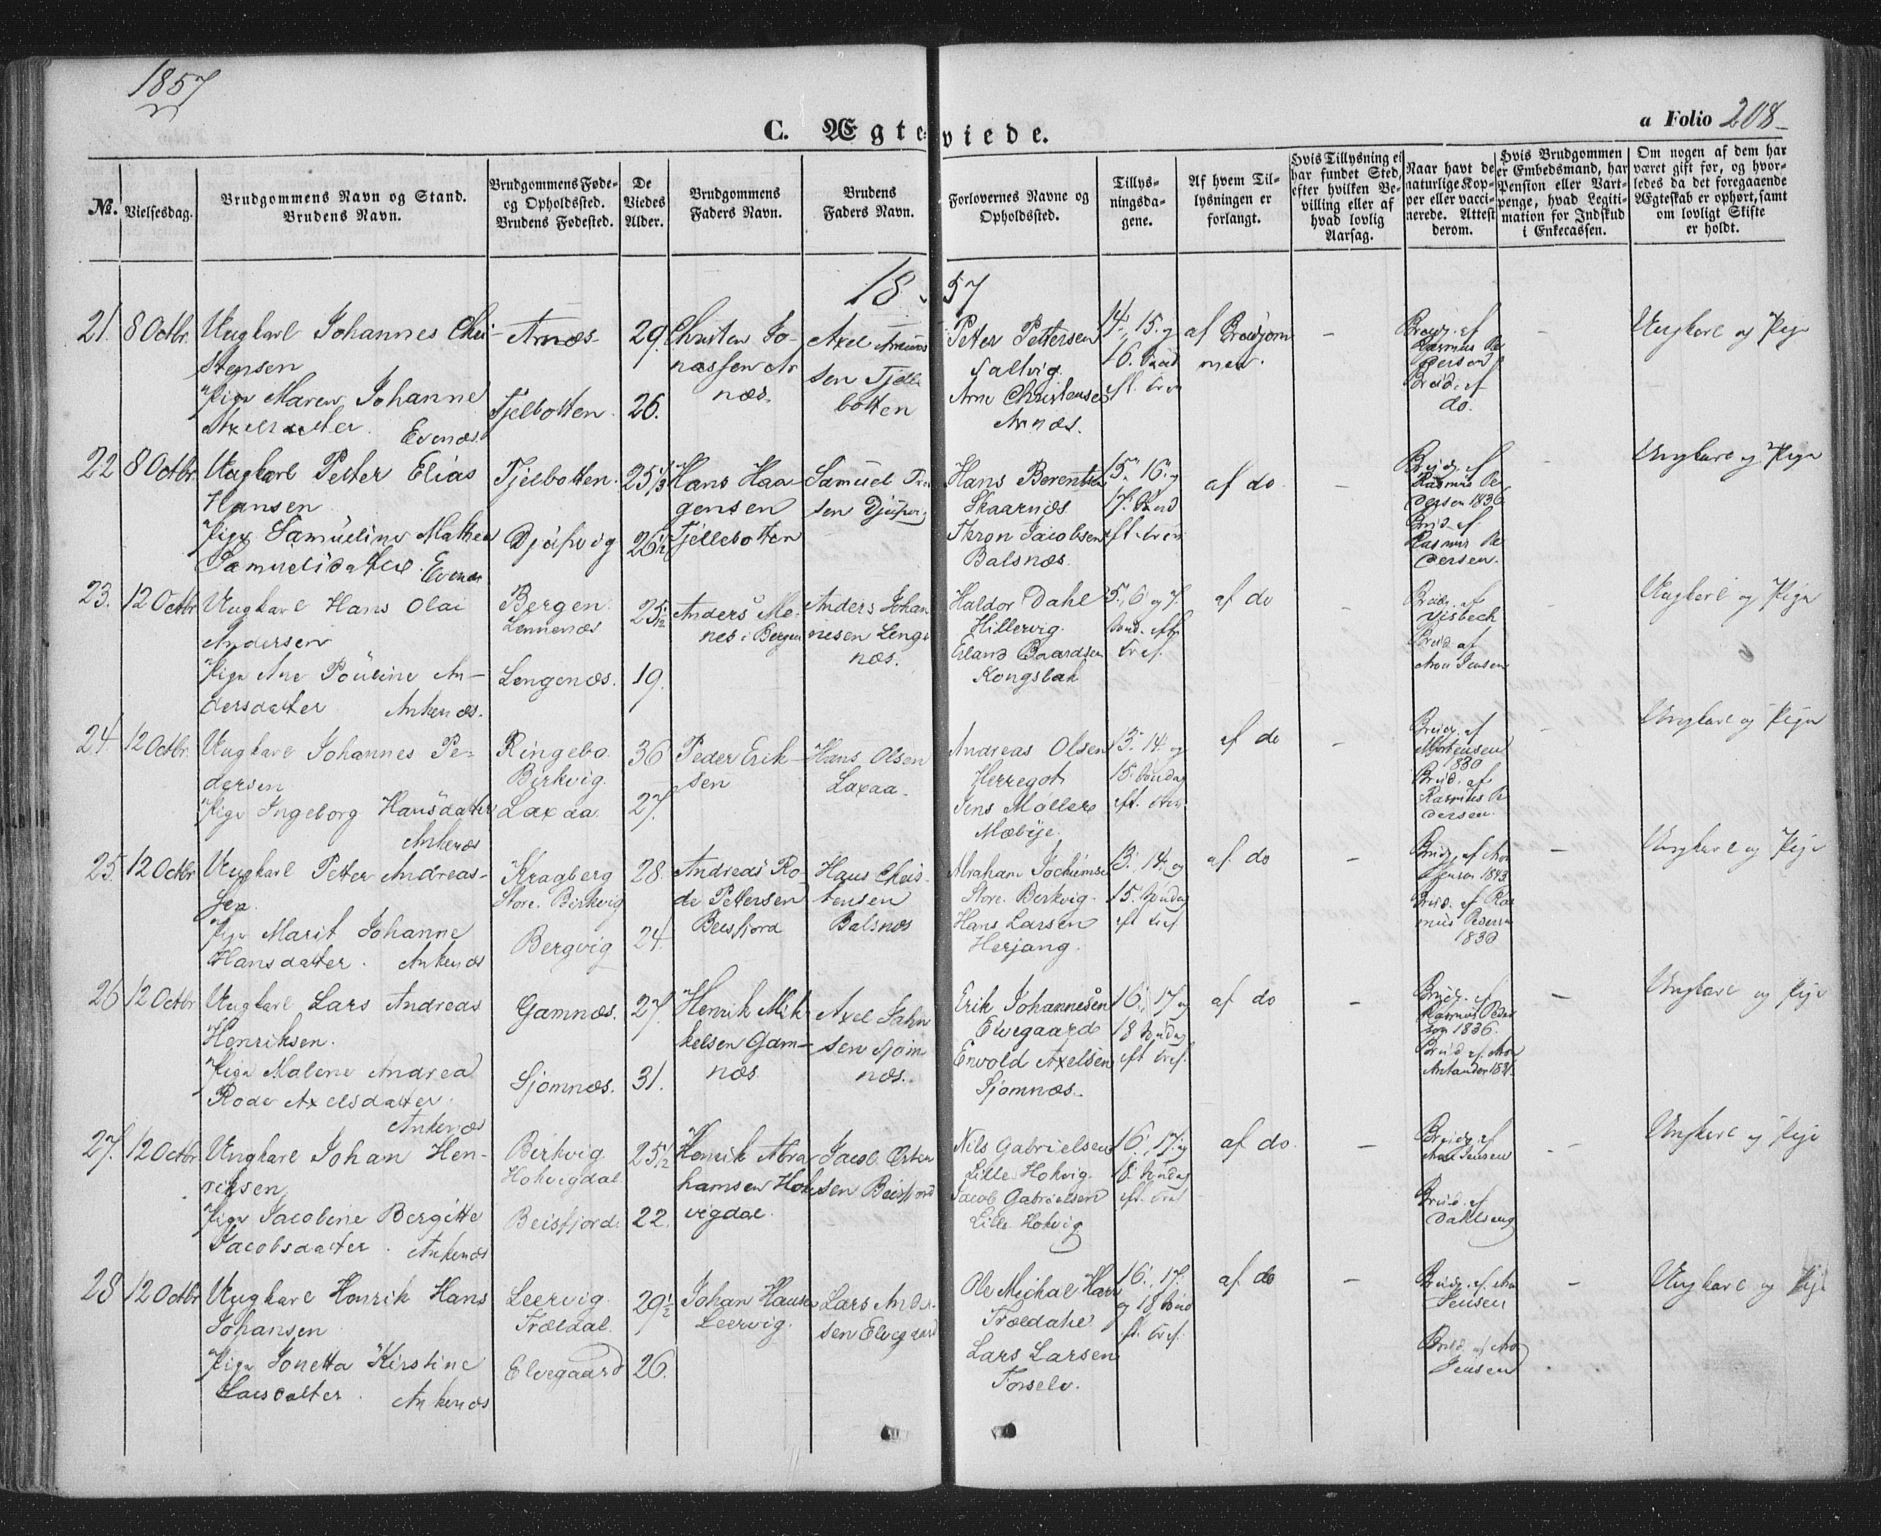 1857
C. Ægteviede.
a Folio 208
No.
Vielsesdag.
Brudgommens Navn og Stand.
Brudens Navn.
Brudgommens Føde-
og Opholdssted.
Brudens Fødested.
De
Viedes
Alder.
Brudgommens
Faders Navn.
Brudens
Faders Navn.
Forlovernes Navne og
Opholdssted.
Tillys-
ningsda-
gene.
Af hvem Til-
lysningen er
forlangt.
Hvis Tillysning ei
har fundet Sted,
efter hvilken Be-
villing eller af
hvad lovlig
Aarsag.
Naar havt de
naturlige Kop-
per eller vacci-
nerede. Attest
derom.
Hvis Brudgommen
er Embedsmand, har
Pension eller Vart-
penge, hvad Legiti-
mation for Indskud
i Enkecassen.
Om nogen af dem har
været gift før, og hvor-
ledes da det foregaaende
Ægteskab er ophørt, samt
om lovligt Skifte
er holdt.
1857
21. 8 Octbr.
Ungkarl Johannes Chri-
stensen
Pige Maren Johanne
Axelsdatter. Evenæs.
Arnæs
Fjelbotten.
29.
26.
Christen Jo-
nassen Ar
næs.
Axel
sen Fjell
botten
Peter Pettersen
Arne Christensen
Arnæs.
14., 15. og
16. Sønd
eft. Tref
af Brudgom
men.
-
Brudg. af
Rasmus Pe
dersen
Brud. af
do.
Ungkarl og Pige
22 8 Octbr.
Ungkarl Petter Elias
Hansen
Pige Samueline Mathea
Samuelsdatter. Evenæs
Fjelbotten.
Djupvig
25 1/3
26 1/2
Hans Haa
gensen
Fjellebotten
Samuel
sen Djupvig
Hans Berentsen
Skaarnæs
Thron Jacobsen
Balsnæs.
15. 16. og
17. Sønd
eft. Tref
af do
-
Brudg. af
Rasmus Pe
dersen 1836
Brud. af
Rasmus Pe
dersen.
-
Ungkarl og Pige
23. 12 Octbr
Ungkarl Hans Olai
Andersen
Pige Ane Pouline An-
dersdatter Ankenæs.
Bergen.
Lengenæs.
25 1/2
19.
Anders Mo
nes i Bergen
Anders Johan
nesen Lenge
næs.
Haldor Dahl
Hillervig.
Erland Baardsen
Kongsbak
5., 6 og 7.
Sønd. eft.
Tref.
af do
Brudg. af
Brud af
Jensen
-
Ungkarl og Pige
24. 12 Octbr.
Ungkarl Johannes Pe-
dersen
Pige Ingeborg Hansdatter
Ankenæs
Ringebo.
Birkvig.
Laxaa
36
27.
Peder Erik-
sen
Hans Olsen
Laxaa.
Andreas Olsen
Herregot
Jens Møllers
Mæbye.
13. 14. og
15. Søndag
eft. Tref.
af do
-
Brudg. af
Mortensen
1830
Brud. af
Rasmus Pe
dersen.
-
Ungkarl og Pige
25. 12 Octbr
Ungkarl Petter Andreas-
sen.
Pige Marit Johanne
Hansdatter. Ankenæs
Kragberg
Store. Birkvig
Bergvig
28.
24.
Andreas Ro-
de Pettersen
Beisfjord
Hans Chris-
tensen
Balsnæs
Abraham Jochumsen
Store. Berkvig.
Hans Larsen
Herjang.
13. 14. og
15. Søndag
eft Tref
af do
-
Brudg. af
1843
Brud. af Ras
mus Pedersen
1830
-
Ungkarl og Pige
26 12 Octbr
Ungkarl Lars Andreas
Henriksen.
Pige Malene Andrea
Rode Axelsdatter.
Ankenæs
Gamnæs.
Sjomnæs.
27.
31.
Henrik Mik
kelsen Gam-
næs
Axel
sen Sjom
næs.
Erik Johannesen
Elvegaard
Envold Axelsen
Sjomnæs.
16., 17 og
18 Søndag
eft Tref.
af do
-
Brudg. af
Rasmus Peder
sen 1836.
Brud. af
-
Ungkarl og Pige
27. 12 Octbr.
Ungkarl Johan Hen-
riksen
Pige Jacobine Bergitte
Jacobsdatter. Ankenæs
Birkvig
Hokvigdal.
Beisfjord.
25 1/2
22.
Henrik Abra
hamsen Hok
vigdal.
Jacob
sen Beisfjord
Nils Gabrielsen
Lille Hokvig.
Jacob Gabrielsen
Lille Hokvig
16., 17. og
18. Søndag
eft. Tref
af do.
-
Brudg. af
Jensen
Brud. af
-
Ungkarl og Pige
28 12 Octbr
Ungkarl Henrik Hans
Johansen
Pige Jonetta Kirstine
Larsdatter. Ankenæs
Leervig.
Trældal.
Elvegaard
29 1/2
26.
Johan Hansen
Leervig.
Lars Ander-
sen Elvegaard
Ole Michal Hans
Trældahl
Lars Larsen
Forselv.
16., 17.
og 18 Sønd
eft. Tref.
af do
-
Brudg. af
Jensen
Brud. af
Jensen
-
Ungkarl og Pige